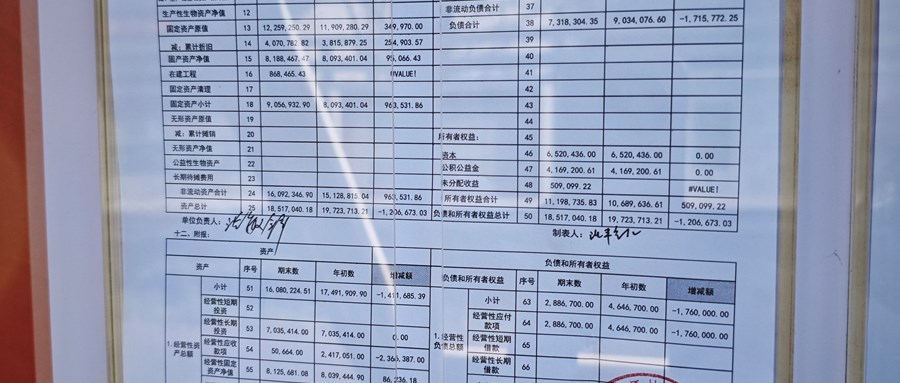 生产性生物资产净值 12
固定资产原值 13 12,259,250.29 11,909,280.29 349,970.00
减：累计折旧 14 4,070,782.82 3,815,879.25 254,903.57
固产资产净值 15 8,188,467.47 8,093,401.04 95,066.43
在建工程 16 868,465.43 #VALUE!
固定资产清理 17
固定资产小计 18 9,056,932.90 8,093,401.04 963,531.86
无形资产原值 19
减：累计摊销 20
无形资产净值 21
公益性生物资产 22
长期待摊费用 23
非流动资产合计 24 16,092,346.90 15,128,815.04 963,531.86
资产总计 25 18,517,040.18 19,723,713.21 -1,206,673.03
非流动负债合计 37
负债合计 38 7,318,304.35 9,034,076.60 -1,715,772.25
39
40
41
42
43
44
所有者权益： 45
资本 46 6,520,436.00 6,520,436.00 0.00
公积公益金 47 4,169,200.61 4,169,200.61 0.00
未分配收益 48 509,099.22 #VALUE!
所有者权益合计 49 11,198,735.83 10,689,636.61 509,099.22
负债和所有者权益总计 50 18,517,040.18 19,723,713.21 -1,206,673.03
单位负责人：
制表人：
十二、附报：
资产
资产 序号 期末数 年初数 增减额
小计 51 16,080,224.51 17,491,909.90 -1,411,685.39
经营性短期投资 52
经营性长期投资 53 7,035,414.00 7,035,414.00 0.00
1.经营性资产总额
经营性应收款项 54 50,664.00 2,417,051.00 -2,366,387.00
经营性固定资产净值 55 8,125,681.08 8,039,444.90 86,236.18
负债和所有者权益
负债和所有者权益 序号 期末数 年初数 增减额
小计 63 2,886,700.00 4,646,700.00 -1,760,000.00
经营性应付款项 64 2,886,700.00 4,646,700.00 -1,760,000.00
1.经营性负债总额
经营性短期借款 65
经营性长期借款 66